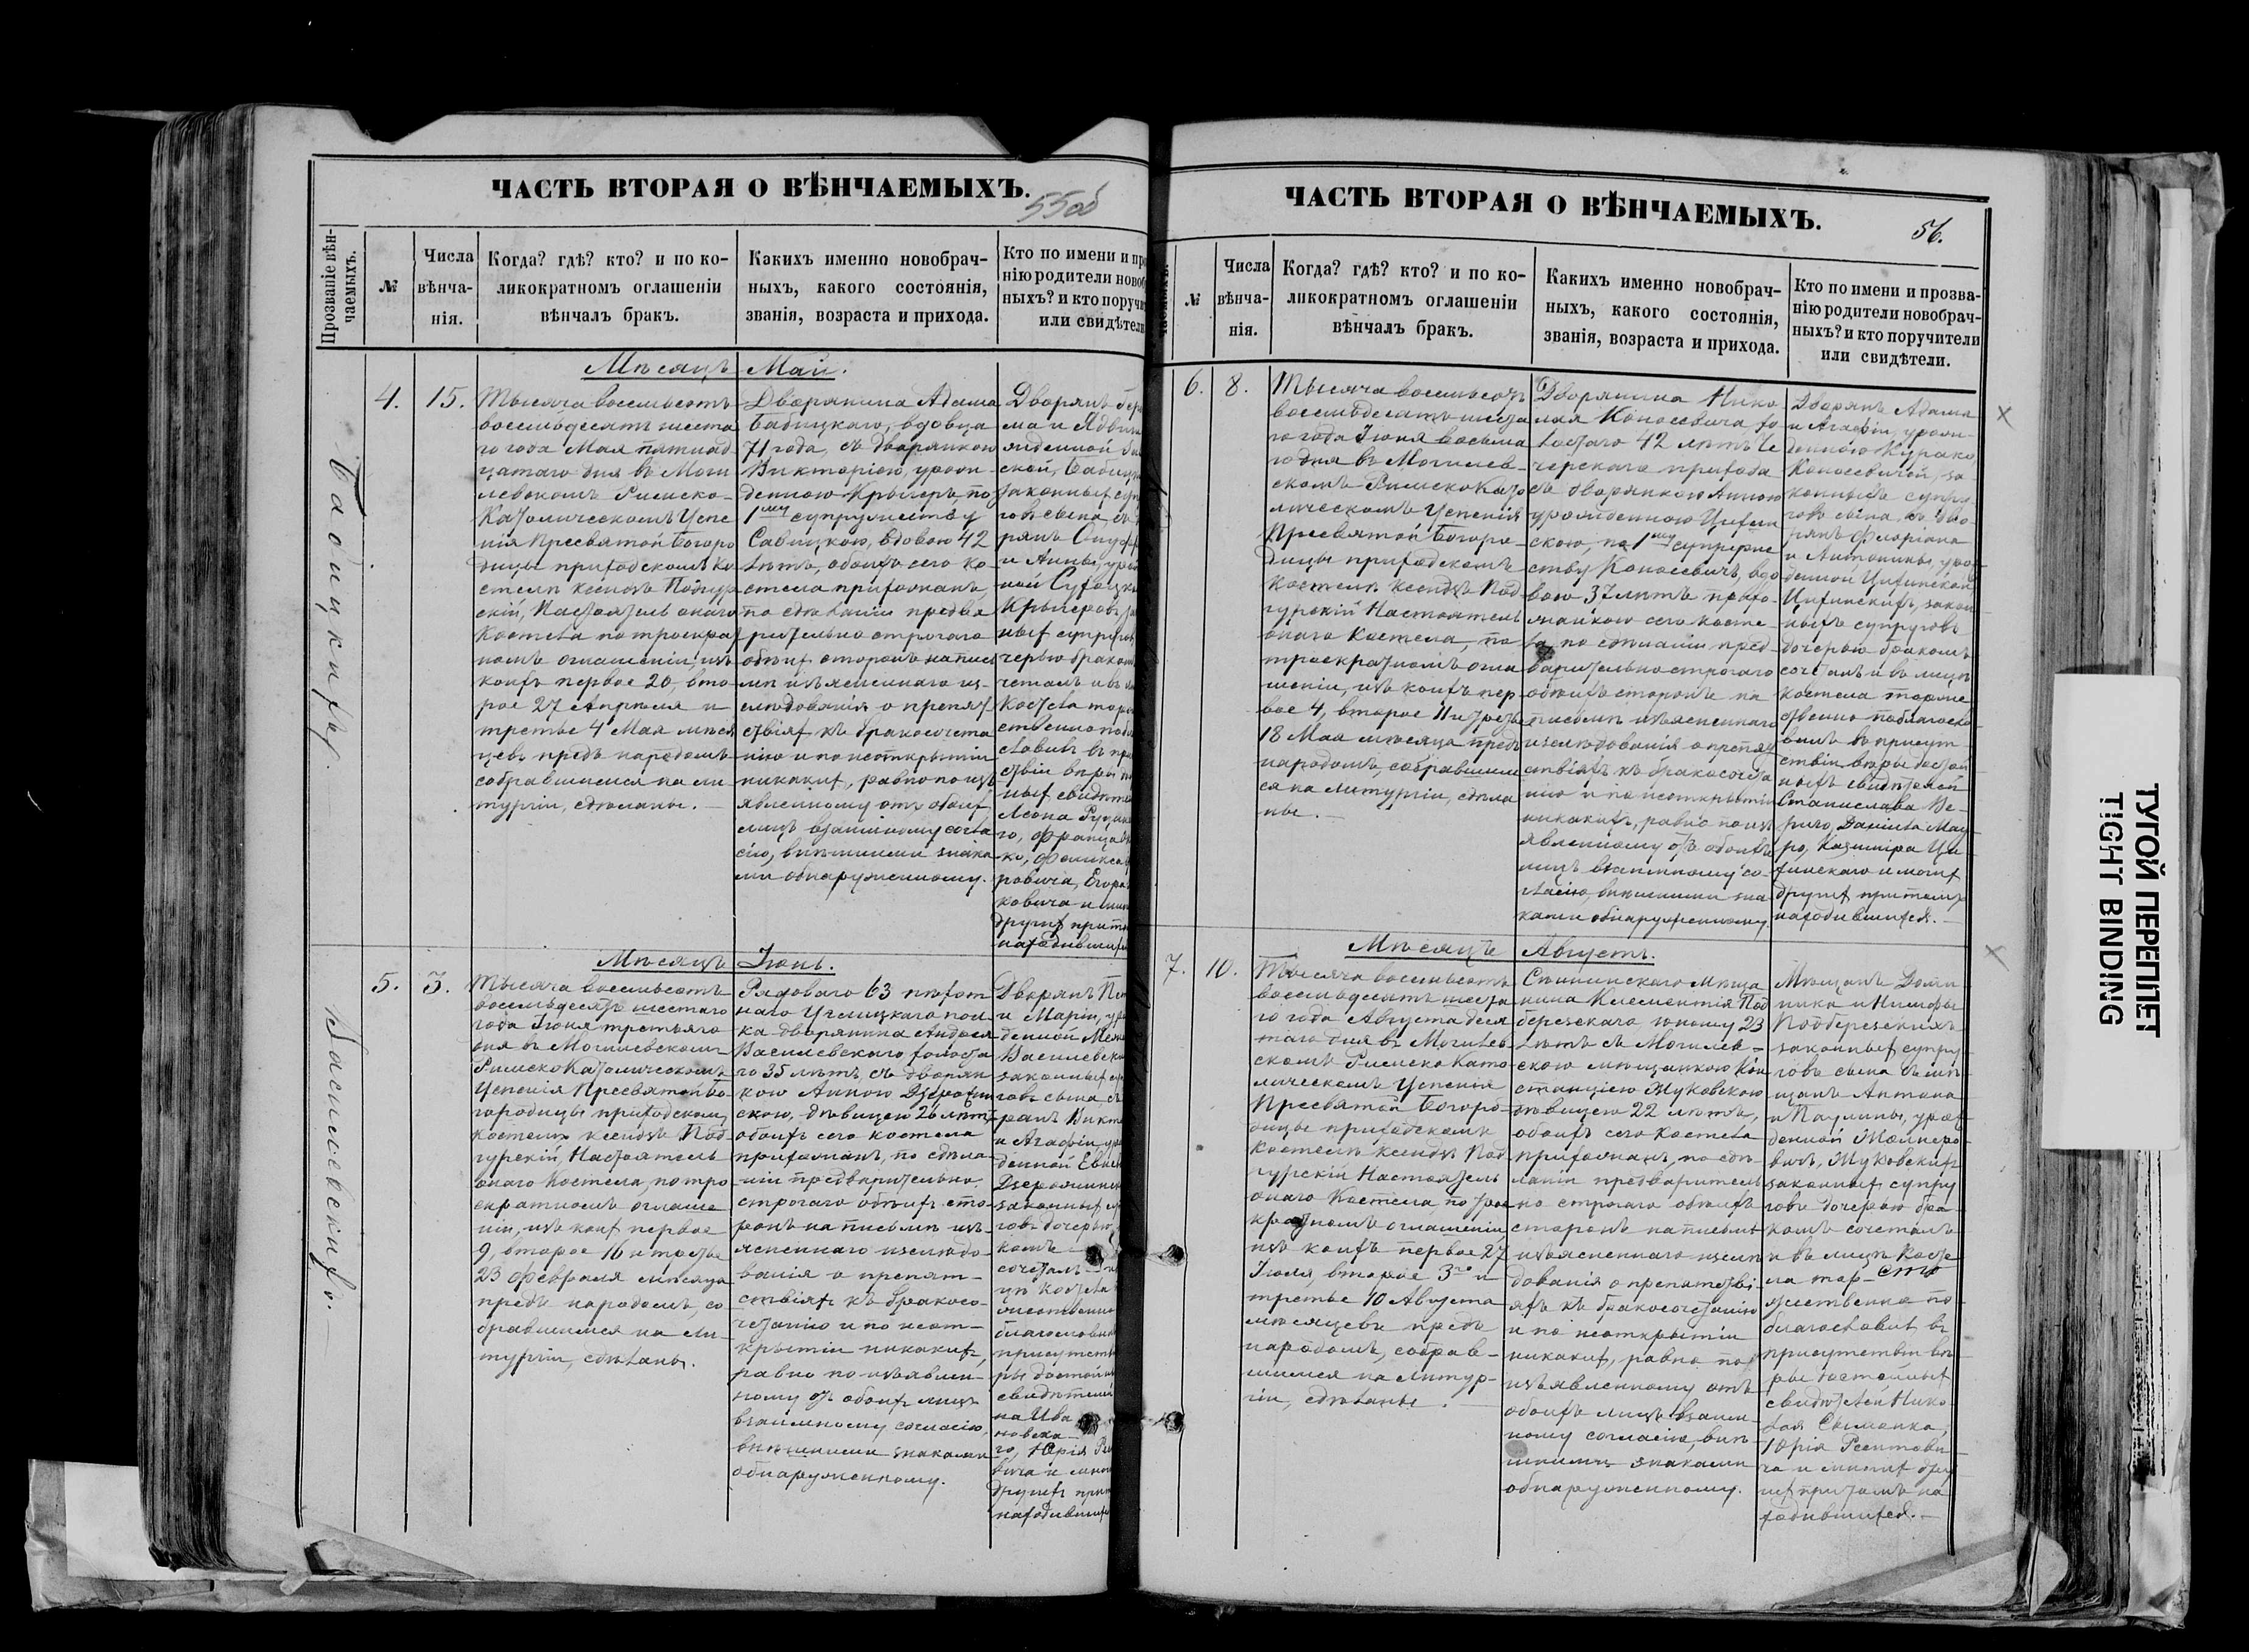 ЧАСТЬ ВТОРАЯ О ВѢНЧАЕМЫХЪ.
55об
Прозваніе вѣн-
чаемыхъ.
№
Числа
вѣнча-
нія.
Когда? гдѣ? кто? и по ко-
ликократномъ оглашеніи
вѣнчалъ бракъ.
Какихъ именно новобрач-
ныхъ, какого состоянія,
званія, возраста и прихода.
Кто по имени и про
нію родители новоб
ныхъ? и кто поручи
или свидѣтели
Мѣсяцъ Май.
Бабицкихъ.
4.
15.
Тысяча восемьсотъ
восемьдесятъ шеста
го года Мая пятнад
цатаго дня въ Моги
левскомъ Римско-
Католическомъ Успе
нія Пресвятой Богоро
дицы приходскомъ Ко
стелѣ ксендзъ Подгур
скій, Настоятель онаго
Костела по троекрат
номъ оглашеніи, изъ
коихъ первое 20, вто-
рое 27 Апрѣля и
третье 4 Мая мѣся
цевъ предъ народомъ
собравшимся на ли
тургіи, сдѣланы.
Дворянина Адама
Бабицкаго, вдовца
71 года, съ дворянкою
Викторіею, урож-
денною Крыгеръ, по
1му супружеству
Савицкою, вдовою 42
лѣтъ, обоихъ сего ко-
стела прихожанъ,
по сдѣланіи предва
рительно строгаго
обѣихъ сторонъ на пись
мѣ изъясненнаго из-
слѣдованія о препят
ствіяхъ къ бракосочета
нію и по неоткрытіи
никакихъ, равно по изъ
явленному отъ обоихъ
лицъ взаимному согла
сію, внѣшними знака
ми обнаруженному.
Дворянъ
ма и Ядвиги
жденной
ской, Бабицк
законныхъ суп
говъ сына, съ
рянъ Онуф
и Анны, уро
ной Сухоцк
Крыгеровъ, за
ныхъ супругов
черью бракомъ
четалъ и въ
Костела торж
ственно побл
словилъ въ при
ствіи вѣры до
ныхъ свидѣте
Леона
го, Франца
ко, Феликса
ровича, Егора
ковича и мно
другихъ прито
находившихся
Мѣсяцъ Іюнь.
Василевскихъ.
5.
3.
Тысяча восемьсотъ
восемьдесятъ шестаго
года Іюня третьяго
дня въ Могилевскомъ
Римско Католическомъ
Успенія Пресвятой Бо-
городицы приходскомъ
костелѣ ксендзъ Под-
гурскій, Настоятель
онаго Костела, по тро
екратномъ оглаше
ніи, изъ коихъ первое
9, второе 16 и третье
23 Февраля мѣсяца
предъ народомъ, со
бравшимся на Ли-
тургіи, сдѣланы.
Рядоваго 63 пѣхот
наго Углицкаго пол
ка дворянина Андрея
Василевскаго холоста
го 35 лѣтъ, съ дворян
кою Анною Дзерожин
скою, дѣвицею 26 лѣтъ,
обоихъ сего костела
прихожанъ, по сдѣла
ніи предварительно
строгаго обѣихъ сто-
ронъ на письмѣ изъ
ясненнаго изслѣдо-
ванія о препят-
ствіяхъ къ бракосо-
четанію и по неот-
крытіи никакихъ,
равно по изъявлен-
ному отъ обоихъ лицъ
взаимному согласію,
внѣшними знаками
обнаруженному.
Дворянъ
и Маріи, уро
жденной
Василевски
законныхъ суп
говъ сына съ
рянъ Викт
и Агафіи уро
жденной
законныхъ
говъ дочерью
комъ
сочеталъ и
цѣ Костела
жественно
благословилъ
присутств
ры достойн
свидѣтелей
на Ива
новска
го, Юрія Рс
вича и мног
другихъ прит
находившихся
ЧАСТЬ ВТОРАЯ О ВѢНЧАЕМЫХЪ.
56.
№
Числа
вѣнча-
нія.
Когда? гдѣ? кто? и по ко-
ликократномъ оглашеніи
вѣнчалъ бракъ.
Какихъ именно новобрач-
ныхъ, какого состоянія,
званія, возраста и прихода.
Кто по имени и прозва-
нію родители новобрач-
ныхъ? и кто поручители
или свидѣтели.
6.
8.
Тысяча восемьсотъ
восемьдесятъ шеста
го года Іюня восьма
го дня въ Могилев-
скомъ Римско Като
лическомъ Успенія
Пресвятой Богоро-
дицы приходскомъ
костелѣ ксендзъ Под
гурскій Настоятель
онаго Костела, по
троекратномъ огла
шеніи, изъ коихъ пер
вое 4, второе 11 и третье
18 Мая мѣсяца предъ
народомъ, собравшим
ся на Литургіи, сдѣла
ны.
Дворянина Нико
лая Коносевича хо
лостаго 42 лѣтъ Че
черскаго прихода
съ дворянкою Анною
урожденною Цихин
скою, по 1му супруже
ству Коносевичъ, вдо
вою 37 лѣтъ прихо-
жанкою сего косте-
ла, по сдѣланіи пред-
варительно строгаго
обѣихъ сторонъ на
письмѣ изъясненнаго
изслѣдованія о препят
ствіяхъ къ бракосочета
нію и по неоткрытіи
никакихъ, равно по изъ
явленному отъ обоихъ
лицъ взаимному со-
гласію, внѣшними зна
ками обнаруженному.
Дворянъ Адама
и Агафіи, урож-
денною Журако
Коносевичей, за-
конныхъ супру-
говъ сына, съ дво-
рянъ Флоріана
и Антонины, уро
жденной Цихинской
Цихинскихъ, закон
ныхъ супруговъ
дочерью бракомъ
сочеталъ и въ лицѣ
костела торже
ственно благосло
вилъ въ присут-
ствіи вѣры достой
ныхъ свидѣтелей
Станислава Ве-
риго, Даніила Мац
ро, Казимира Ци
хинскаго и многихъ
другихъ притомъ
находившихся.
Мѣсяцъ Августъ.
7.
10.
Тысяча восемьсотъ
восемьдесятъ шеста
го года Августа деся
таго дня въ Могилев
скомъ Римско Като
лическомъ Успенія
Пресвятой Богоро-
дицы приходскомъ
Костелѣ ксендзъ Под
гурскій Настоятель
онаго Костела, по трое
кратномъ оглашеніи,
изъ коихъ первое 27
Іюля, второе 3го и
третье 10 Августа
мѣсяцевъ предъ
народомъ, собрав-
шимся на Литур-
гіи, сдѣланы.
Сѣннинскаго мѣща
нина Клементія Под
березскаго юношу 23
лѣтъ съ Могилев-
скою мѣщанкою Кон
станціею Жуковскою
дѣвицею 22 лѣтъ,
обоихъ сего Костела
прихожанъ, по сдѣ
ланіи предваритель
но строгаго обѣихъ
сторонъ на письмѣ
изъясненнаго изслѣ
дованія о препятстві
яхъ къ бракосочетанію
и по неоткрытіи
никакихъ, равно по
изъявленному отъ
обоихъ лицъ взаим-
ному согласію, внѣ-
шними знаками
обнаруженному.
Мѣщанъ Доми
ника и Нимфы
Подберезскихъ
законныхъ супру
говъ сына съ мѣ
щанъ Антона
и Паулины, урож
денной
вичъ, Жуковскихъ
законныхъ супру
говъ дочерью бра-
комъ сочеталъ
и въ лицѣ Косте
ла тор-
жественно по
благословилъ въ
присутствіи вѣ
ры достойныхъ
свидѣтелей Нико-
лая Сыманко,
Юрія
ча и многихъ дру
гихъ притомъ на
ходившихся.
ТУГОЙ ПЕРЕПЛЕТ
TIGHT BINDING